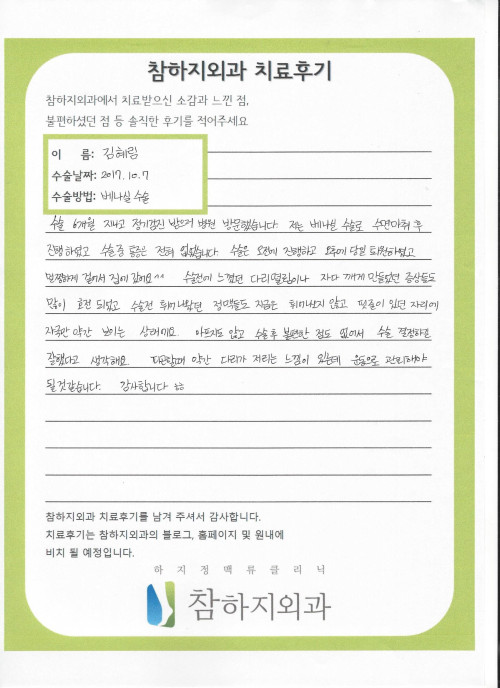 참하지외과 치료후기
참하지외과에서 치료받으신 소감과 느낀 점,
불편하셨던 점 등 솔직한 후기를 적어주세요
이 름: 김혜림
수술날짜: 2017. 10. 7
수술방법: 베나실 수술
수술 6개월 지나고 정기검진 받으러 병원 방문했습니다. 저는 베나실 수술로 수면마취 후
진행하였고 수술중 통증은 전혀 없었습니다. 수술은 오전에 진행하고 오후에 당일 퇴원하였고
멀쩡하게 걸어서 집에 갔어요^^ 수술전에 느꼈던 다리떨림이나 자다 깨게 만들었던 증상들도
많이 호전 되었고 수술전 튀어나왔던 정맥들도 지금은 튀어나오지 않고 핏줄이 있던 자리에
자국만 약간 보이는 상태에요. 아프지도 않고 수술후 불편한 점도 없어서 수술 결정하길
잘했다고 생각해요. 피곤할때 약간 다리가 저리는 느낌이 오는데 운동으로 관리해야
될것같습니다. 감사합니다 ㅎㅎ
참하지외과 치료후기를 남겨 주셔서 감사합니다.
치료후기는 참하지외과의 블로그, 홈페이지 및 원내에
비치 될 예정입니다.
하지정맥류클리닉
참하지외과